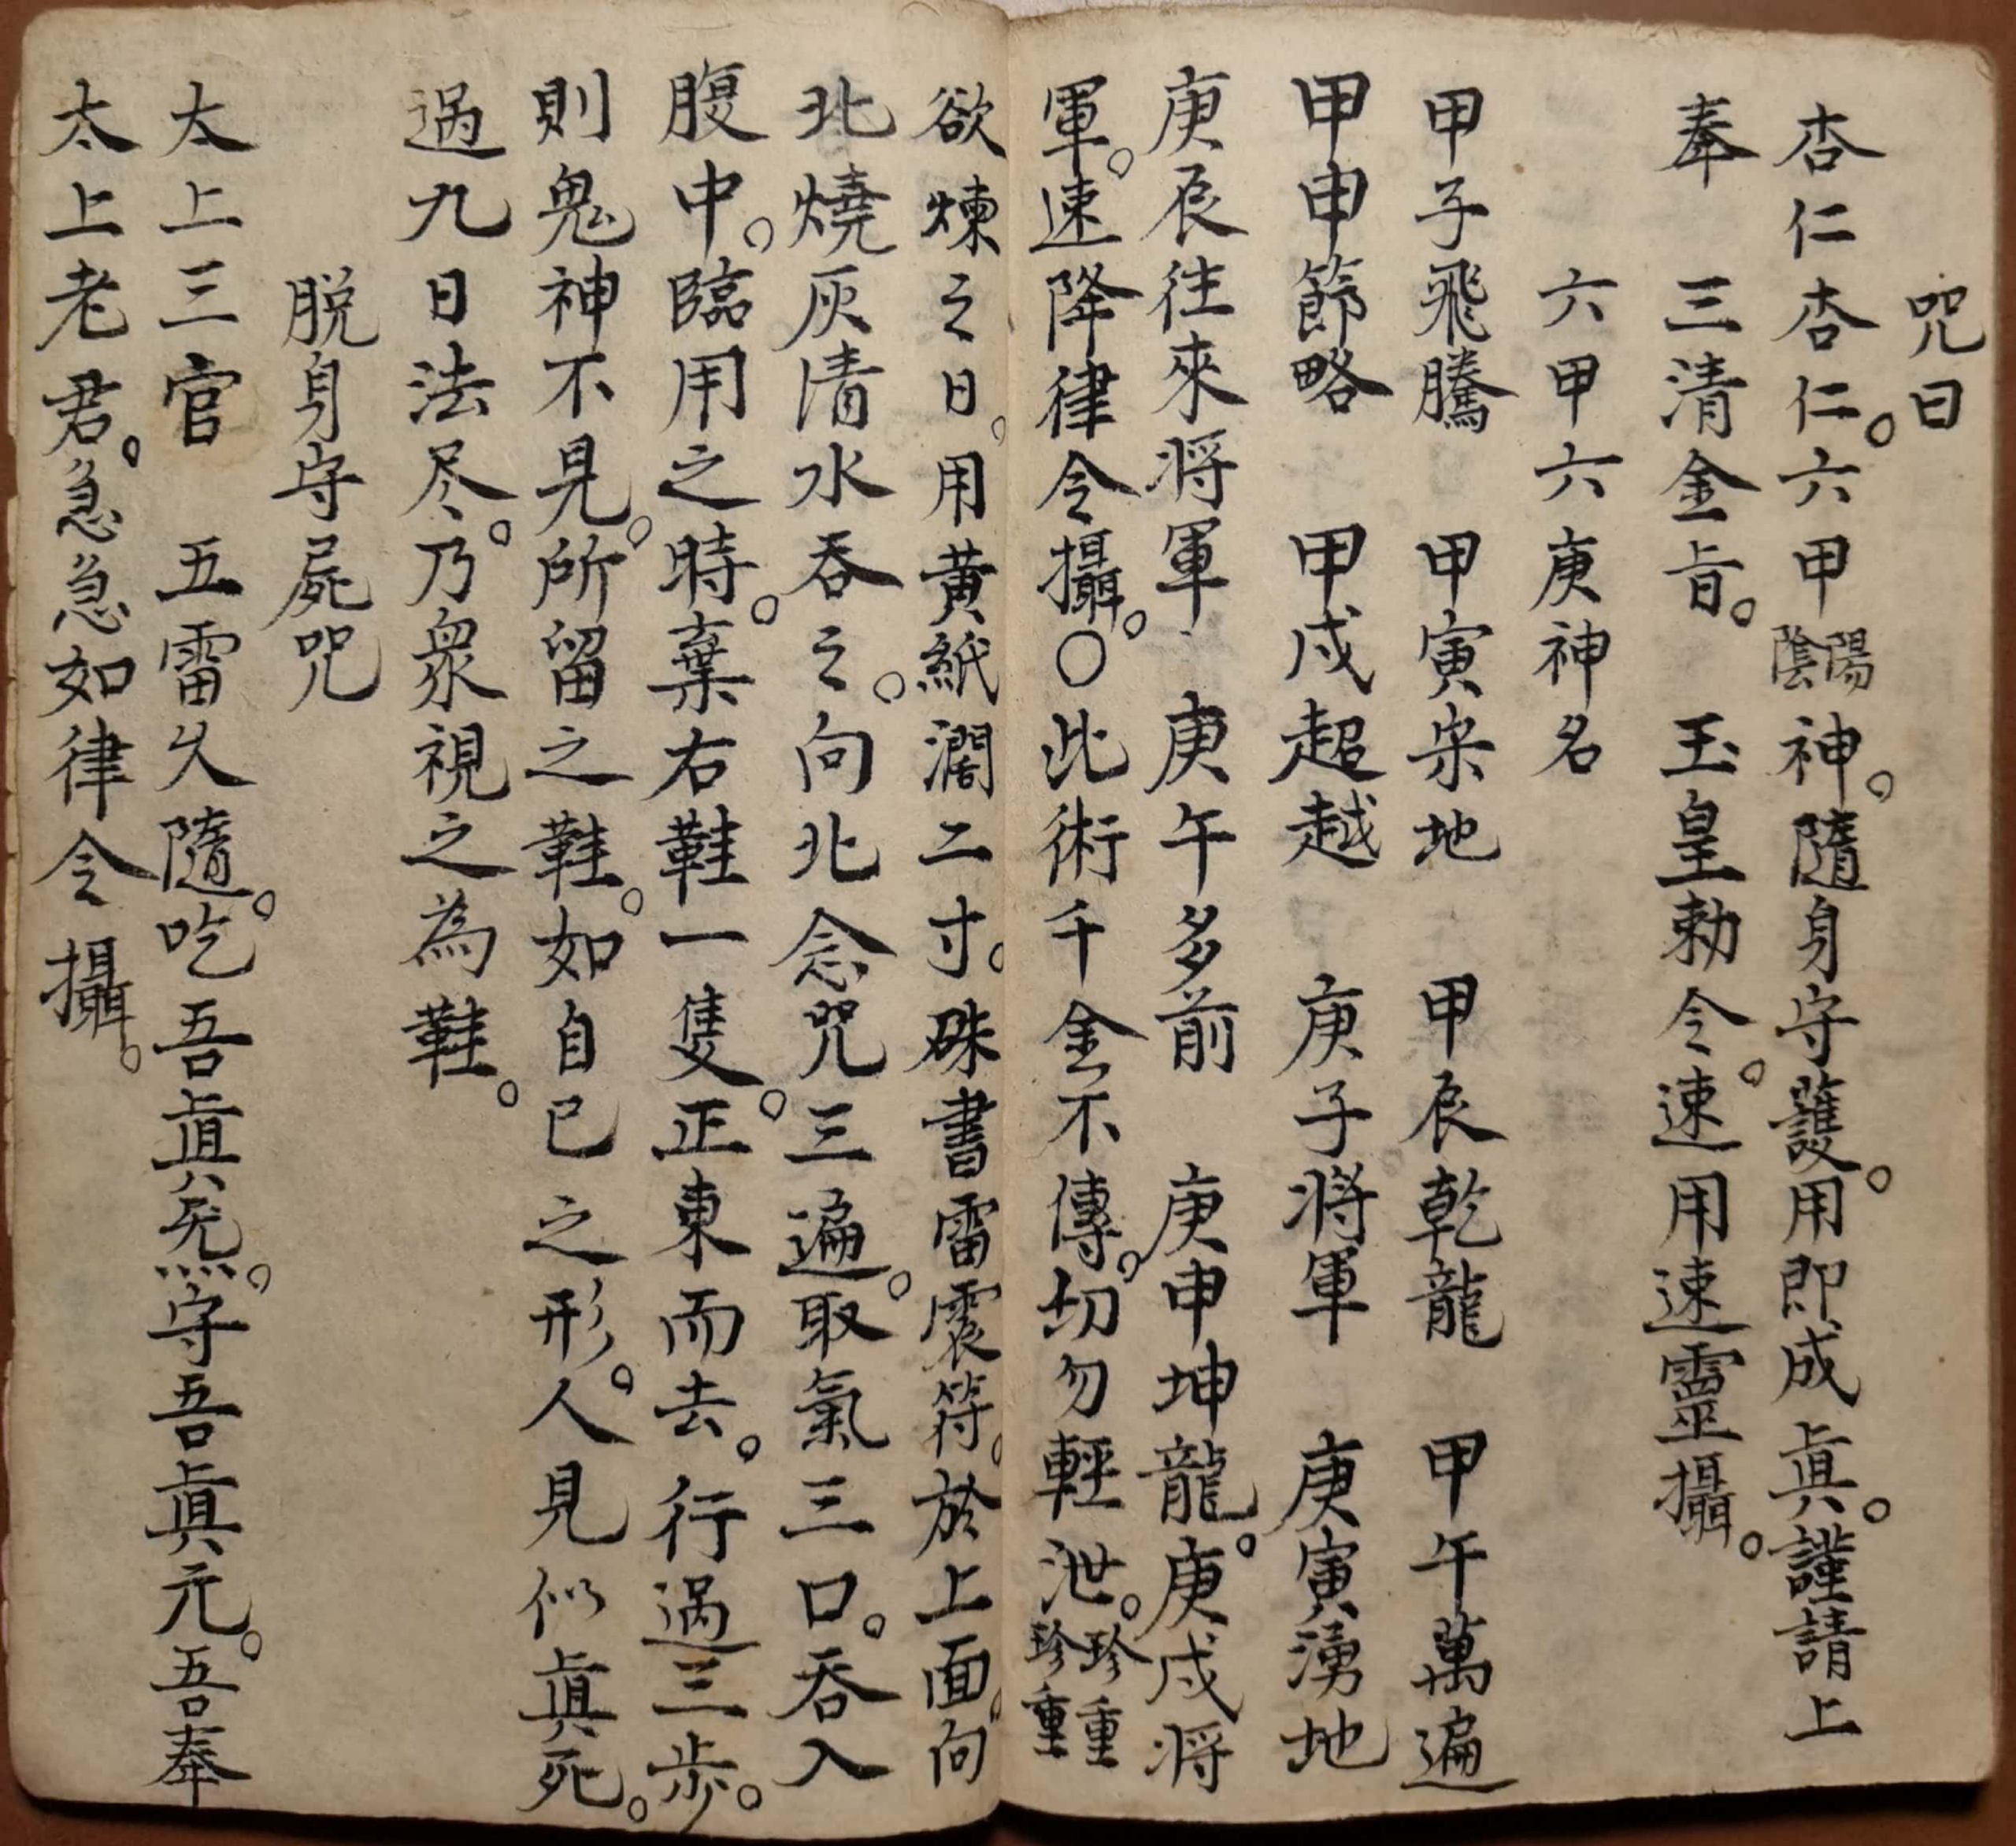 咒曰
杏仁杏仁。六甲陽陰神。隨身守護。用即成眞。謹請上
奉　三清金旨。　玉皇勅令。速用速靈攝。
六甲六庚神名
甲子飛騰　甲寅宋地　甲辰乾龍　甲午萬遍
甲申節略　甲戌超越　庚子將軍　庚寅湧地
庚辰往來将軍　庚午多前　庚申坤龍。庚戌将
軍。速降律令攝。〇此術千金不傳。切勿輕泄。珍重珍重
欲煉之日。用黃紙濶二寸。硃書雷震符。於上面。向
北燒灰清水吞之。向北念咒三遍。取氣三口。吞入
腹中。臨用之時。棄右鞋一隻。正東而去。行過三步。
則鬼神不見。所留之鞋。如自已之形。人見似眞死。
過九日法尽。乃衆視之為鞋。
脱身守屍咒
太上三官　五雷火隨。吃吾眞炁。守吾眞元。吾奉
太上老君。急急如律令攝。